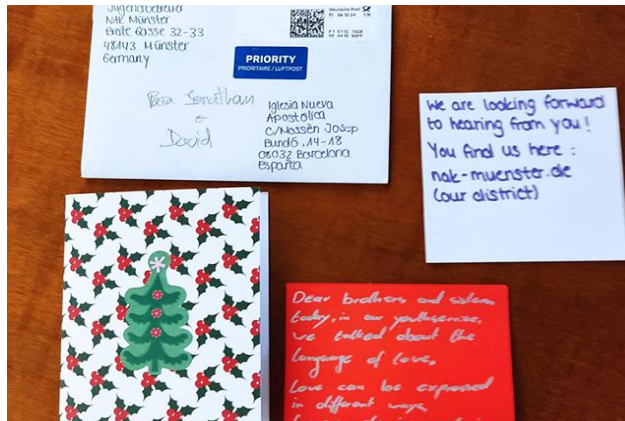 Jugendbetreuer
NAK Münster
Breite Gasse 32-33
48143 Münster
Germany
Deutsche Post
PRIORITY
PRIORITAIRE / LUFTPOST
Para Jonathan
e
David
Iglesia Nueva
Apostólica
C/Mossèn Josep
Bundó, 14-18
08032 Barcelona
España
We are looking forward
to hearing from you!
You find us here:
nak-muenster.de
(our district)
Dear brothers and sisters
today, in our youthservice,
we talked about the
language of love.
Love can be expressed
in different ways,